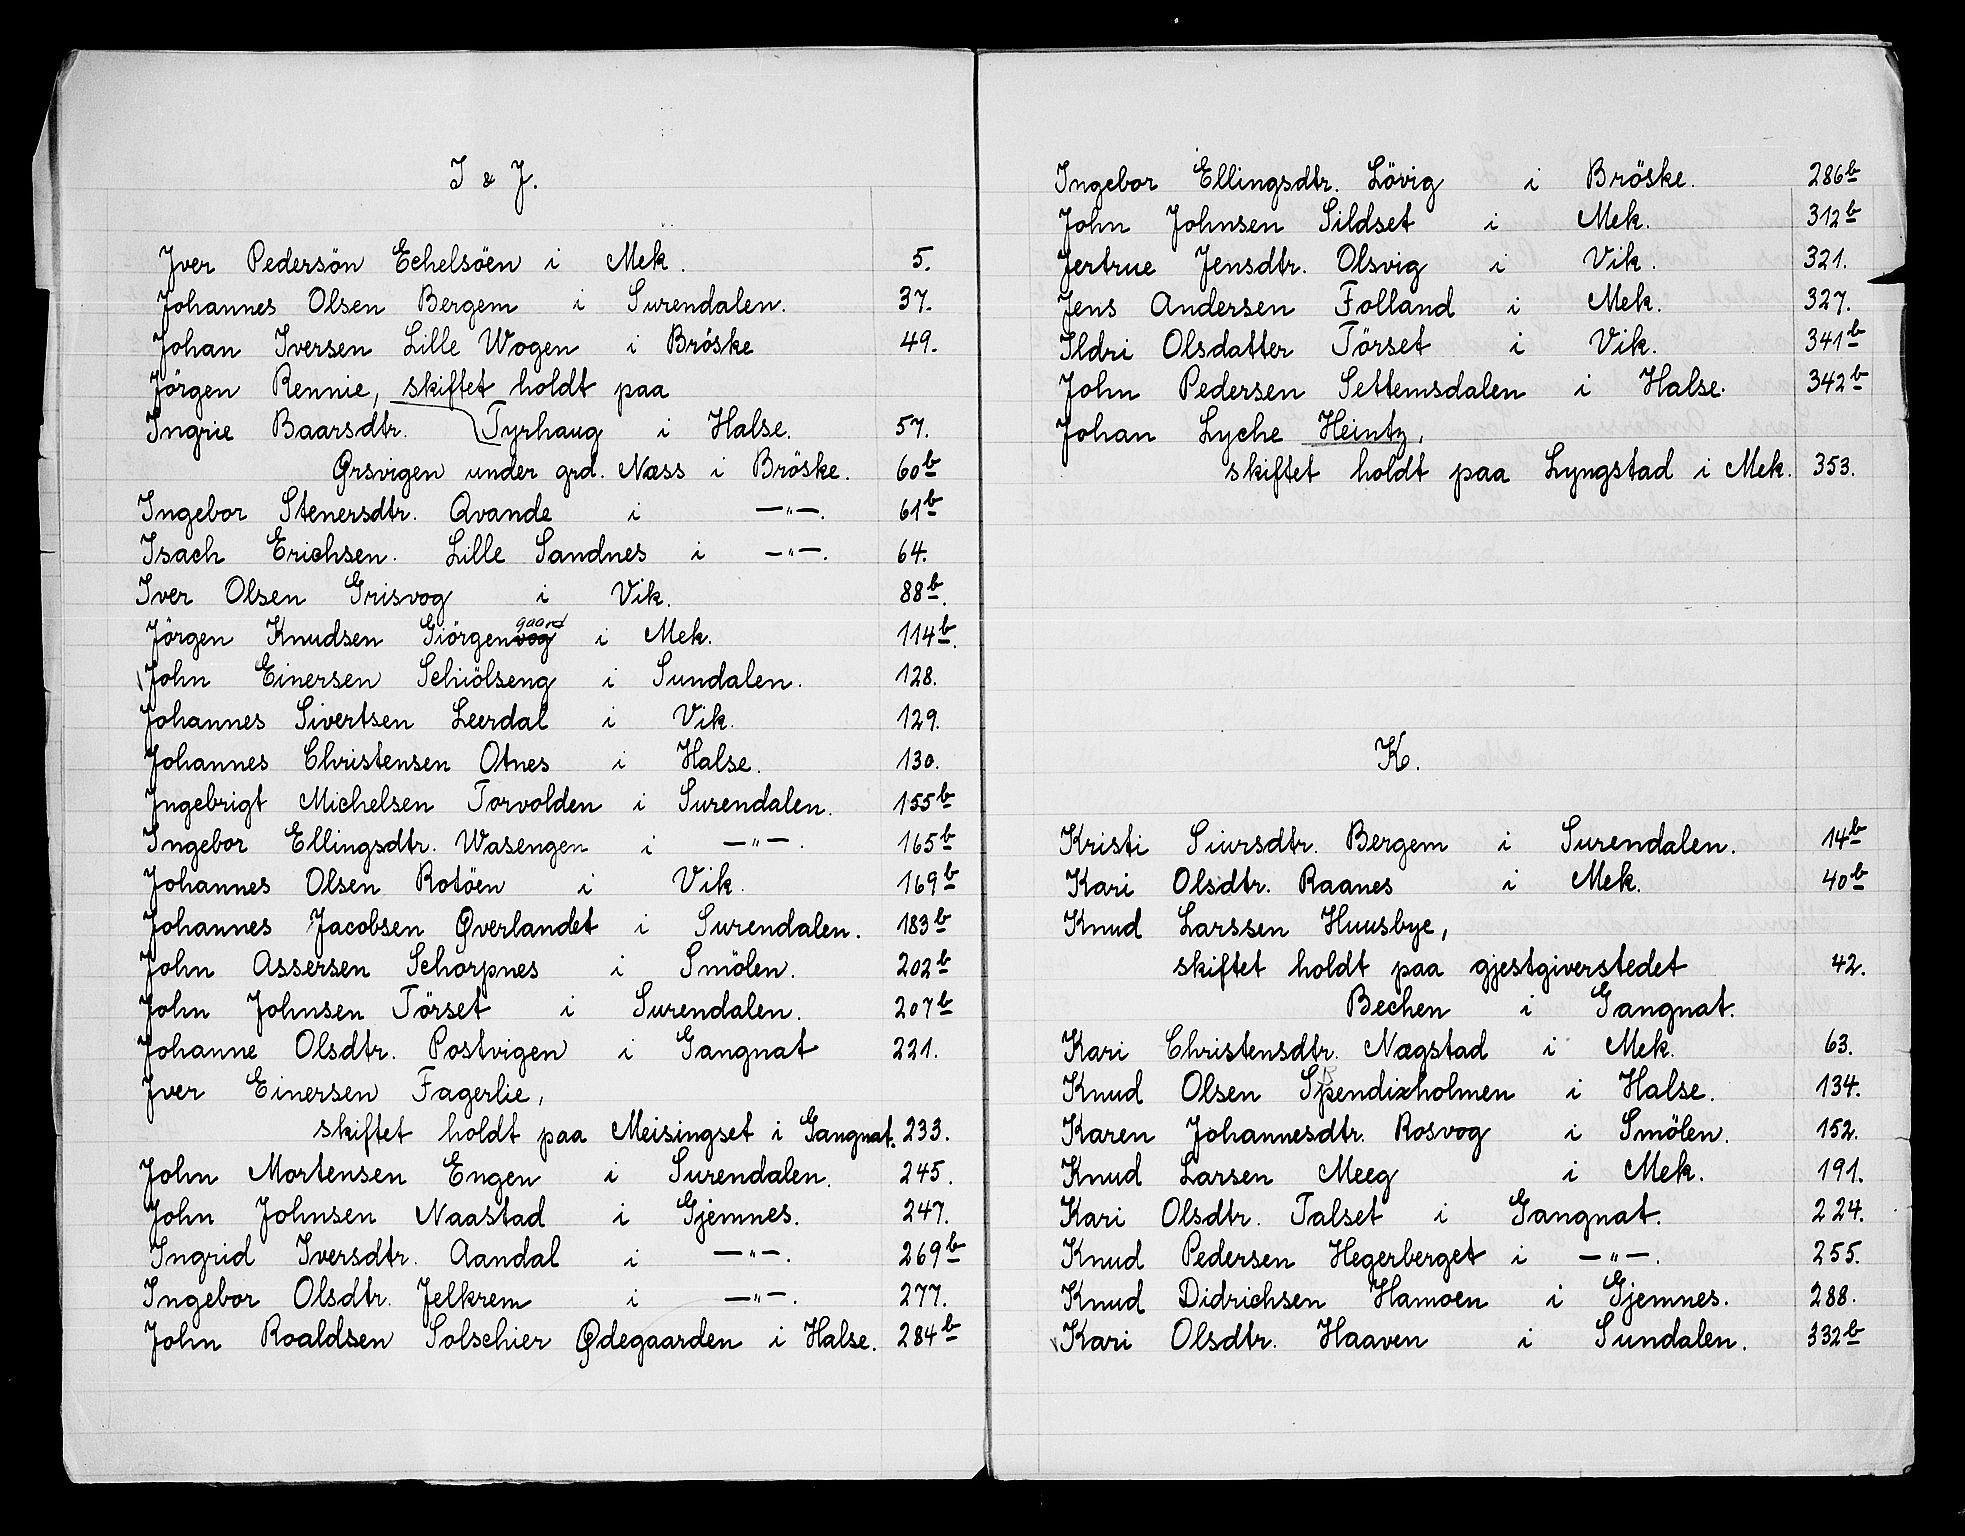 I & J.
Iver Pedersön Echelsöen i Mek. 5.
Johannes Olsen Bergem i Surendalen. 37.
Johan Iversen Lille Wogen i Bröske 49.
Jörgen Rennie, skiftet holdt paa
Ingrie Baarsdtr. Tyrhaug i Halse. 57.
Ørsvigen under grd. Næss i Bröske. 60b
Ingebor Stenersdtr. Qvande i —"—. 61b
Isach Erichsen. Lille Sandnes i —"—. 64.
Iver Olsen Grisvog i Vik. 88b.
Jörgen Knudsen Giörgenvog gaard i Mek. 114b.
John Einersen Schiölseng i Sundalen. 128.
Johannes Sivertsen Leerdal i Vik. 129.
Johannes Christensen Otnes i Halse. 130.
Ingebrigt Michelsen Torvolden i Surendalen. 155b
Ingebor Ellingsdtr. Wasengen i —"—. 165b
Johannes Olsen Rotöen i Vik. 169b
Johannes Jacobsen Øverlandet i Surendalen. 183b
John Assersen Schorpnes i Smölen. 202b
John Johnsen Törset i Surendalen. 207b
Johanne Olsdtr. Postvigen i Gangnat 221.
Iver Einersen Fagerlie,
skiftet holdt paa Meisingset i Gangnat. 233.
John Mortensen Engen i Surendalen. 245.
John Johnsen Naastad i Gjemnes. 247.
Ingrid Iversdtr. Aandal i —"—. 269b
Ingebor Olsdtr. Jelkrem i —"—. 277.
John Roaldsen Solschier Ødegaarden i Halse. 284b
Ingebor Ellingsdtr. Lövig i Bröske. 286b
John Johnsen Sildset i Mek. 312b
Jertrue Jensdtr. Olsvig i Vik. 321.
Jens Andersen Folland i Mek. 327.
Ildri Olsdatter Törset i Vik. 341b
John Pedersen Settemsdalen i Halse. 342b
Johan Lyche Heintz,
skiftet holdt paa Lyngstad i Mek. 353.
K.
Kristi Siursdtr. Bergem i Surendalen. 14b
Kari Olsdtr. Raanes i Mek. 40b
Knud Larssen Huusbye,
skiftet holdt paa gjestgiverstedet 42.
Bechen i Gangnat.
Kari Christensdtr. Nægstad i Mek. 63.
Knud Olsen Spendixholmen i Halse. 134.
Karen Johannesdtr. Rosvog i Smölen. 152.
Knud Larsen Meeg i Mek. 191.
Kari Olsdtr. Talset i Gangnat. 224.
Knud Pedersen Hegerberget i —"—. 255.
Knud Didrichsen Hamoen i Gjemnes. 288.
Kari Olsdtr. Haaven i Sundalen. 332b